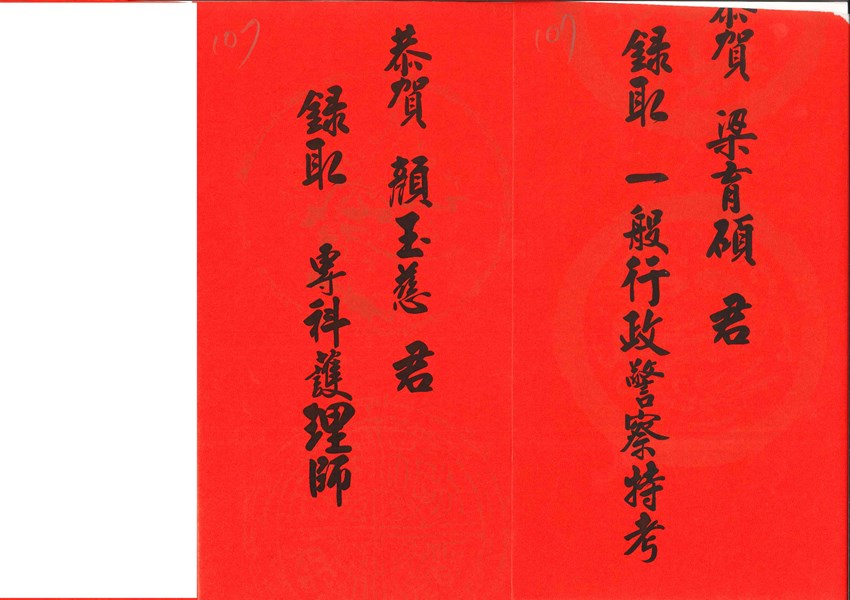 107
恭賀 梁育碩 君
録取 一般行政警察特考
107
恭賀 顏玉慈 君
録取 專科護理師